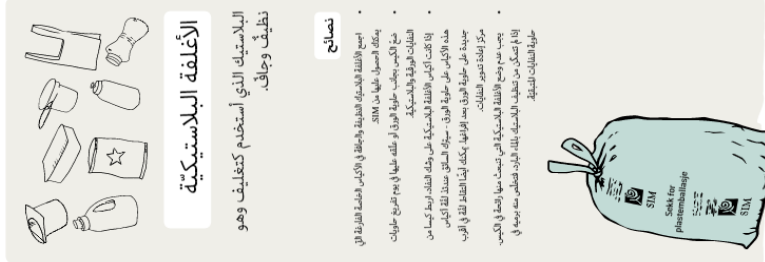 الأغلفة البلاستيكيّة
البلاستيك الذي أستخدم كتغليف وهو
نظيفٌ وجافٌ.
نصائح
• اجمع الأغلفة البلاستيك النظيفة والجافة في الأكياس الخاصة الفارغة التي
يمكنك الحصول عليها من SIM.
• ضع الكيس بجانب حاوية الورق أو علقه عليها في يوم تفريغ حاويات
النفايات الورقية والبلاستيكية.
• إذا كانت أكياس الأغلفة البلاستيكية على وشك النفاد، اربط كيسا من
هذه الأكياس على حاوية الورق - سيترك السائق عندئذ لفة أكياس
جديدة على حاوية الورق بعد إفراغها. يمكنك أيضا التقاط لفة في أقرب
مركز إعادة تدوير النفايات.
• يجب عدم وضع الأغلفة البلاستيكية التي تنبعث منها رائحة في الكيس.
إذا لم تتمكن من تنظيف البلاستيك بالماء البارد، فتخلص منه برميه في
حاوية النفايات المتبقية.
SIM
Sekk for
plastemballasje
SIM